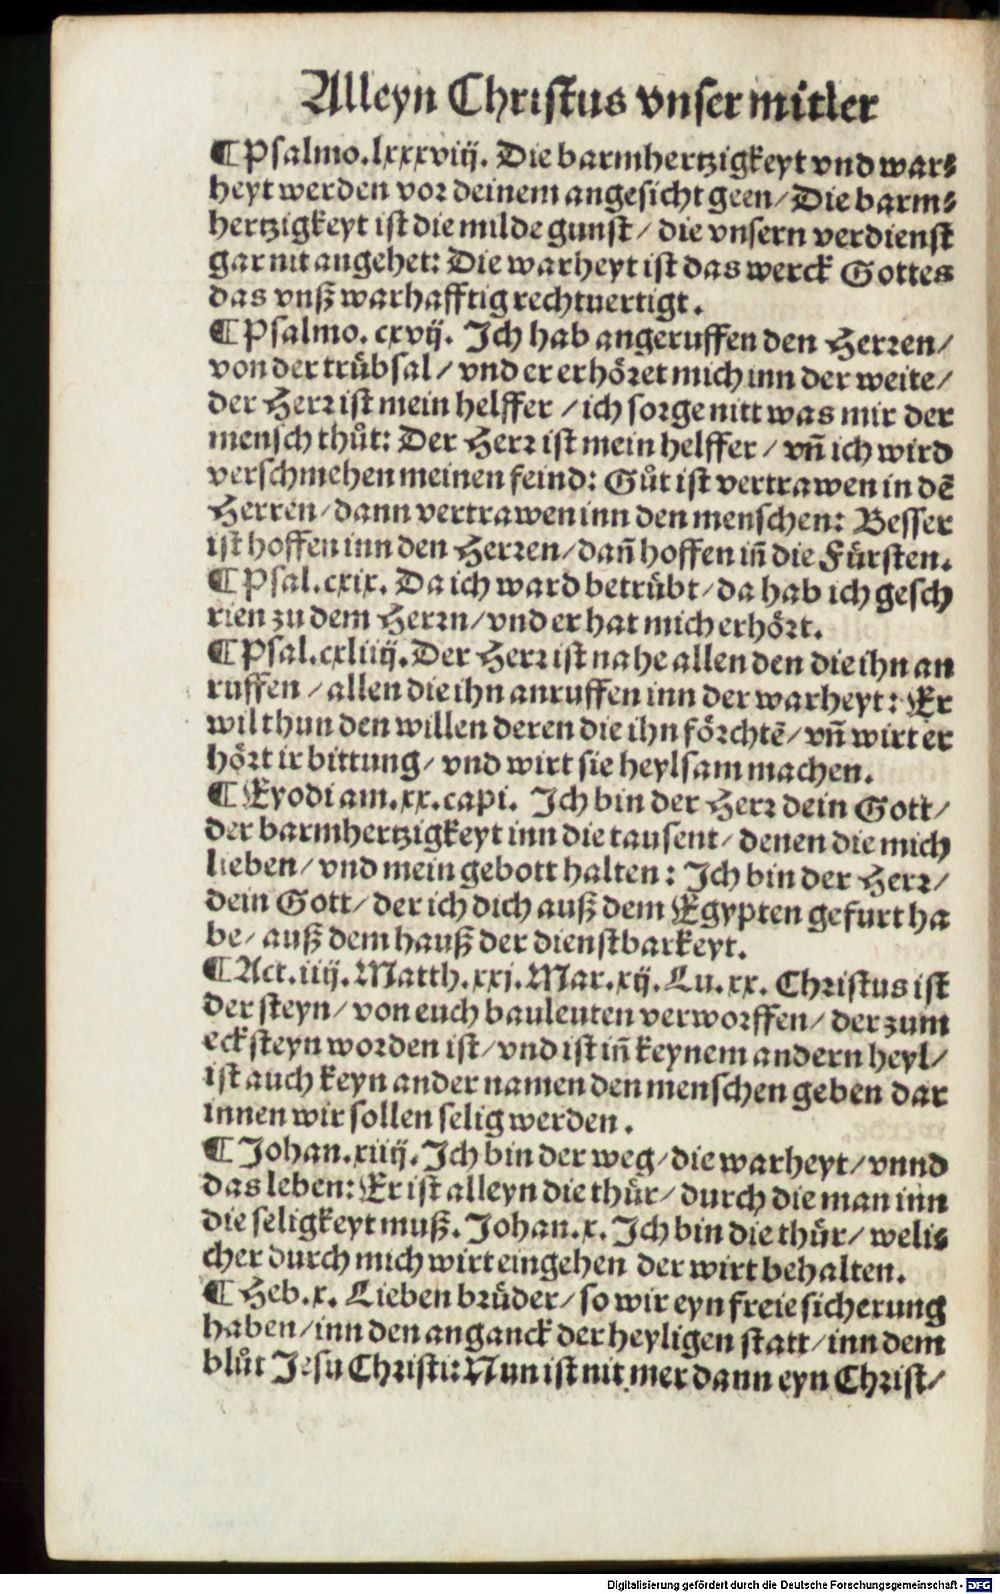 Alleyn Christus vnser mitler
¶ Psalmo.lxxxviij. Die barmhertzigkeyt vnd war⸗
heyt werden vor deinem angesicht geen/ Die barm⸗
hertzigkeyt ist die milde gunst/ die vnsern verdienst
gar nit angehet: Die warheyt ist das werck Gottes
das vnß warhafftig rechtuertigt.
¶ Psalmo. cxvij. Ich hab angeruffen den Herren/
von der trübsal/ vnd er erhöret mich inn der weite/
der Herr ist mein helffer /ich sorge nitt was mir der
mensch thůt: Der Herr ist mein helffer/ vñ ich wird
verschmehen meinen feind: Gůt ist vertrawen in dẽ
Herren/dann vertrawen inn den menschen: Besser
ist hoffen inn den Herren/dañ hoffen iñ die Fürsten.
¶ Psal.cxix. Da ich ward betrübt/da hab ich gesch
rien zu dem Herrn/vnd er hat mich erhört.
¶ Psal.cxliiij.Der Herr ist nahe allen den die ihn an
ruffen /allen die ihn anruffen inn der warheyt: Er
wil thun den willen deren die ihn förchtẽ/vñ wirt er
hört ir bittung/ vnd wirt sie heylsam machen.
¶ Exodi am.xx.capi. Ich bin der Herr dein Gott/
der barmhertzigkeyt inn die tausent/ denen die mich
lieben/vnd mein gebott halten: Ich bin der Herr/
dein Gott/der ich dich auß dem Egypten gefurt ha
be/auß dem hauß der dienstbarkeyt.
¶ Act.iiij.Matth.xxj.Mar.xij.Lu.xx. Christus ist
der steyn/ von euch bauleuten verworffen/ der zum
ecksteyn worden ist/vnd ist iñ keynem andern heyl/
ist auch keyn ander namen den menschen geben dar
innen wir sollen selig werden.
¶ Johan.xiiij.Ich bin der weg/die warheyt/vnnd
das leben: Er ist alleyn die thür/ durch die man inn
die seligkeyt muß. Johan.x. Ich bin die thür/ weli⸗
cher durch mich wirt eingehen der wirt behalten.
¶ Heb.x. Lieben brüder/so wir eyn freie sicherung
haben/inn den anganck der heyligen statt/inn dem
blůt Jesu Christi: Nun ist nit mer dann eyn Christ/
Digitalisierung gefördert durch die Deutsche Forschungsgemeinschaft - DFG